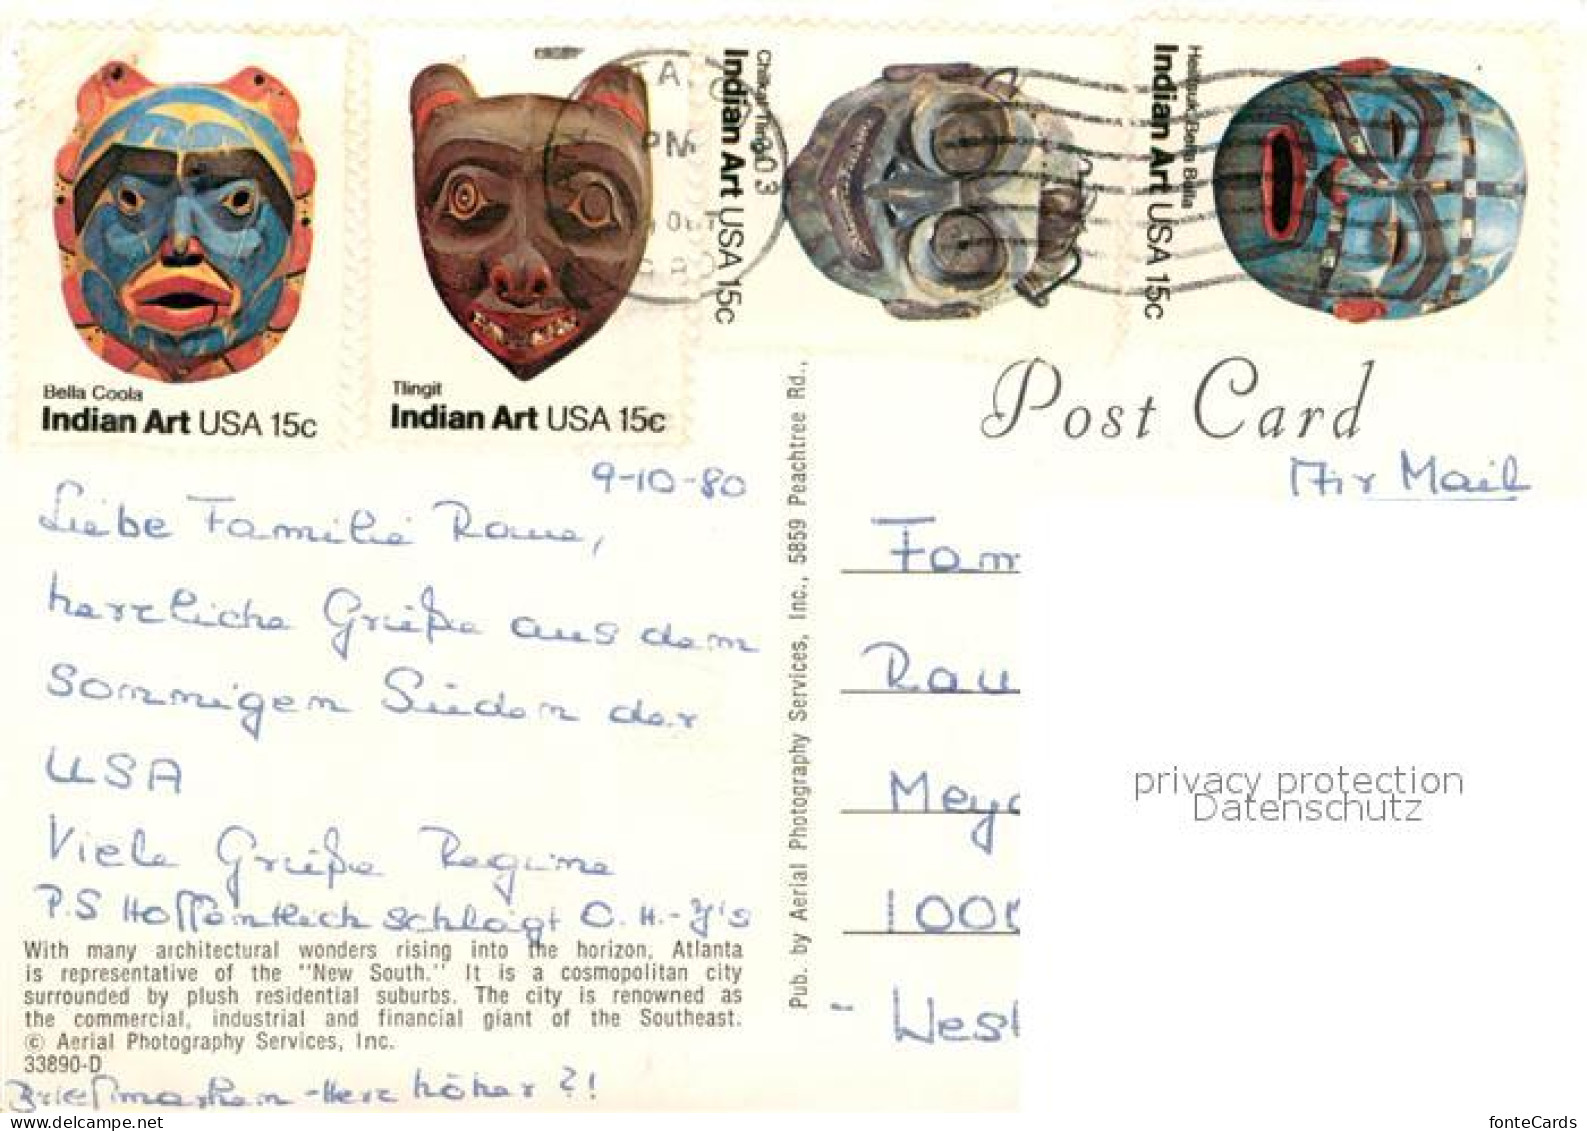 Bella Coola
Indian Art USA 15c
Tlingit
Indian Art USA 15c
Chilkat Tlingit
Indian Art USA 15c
Heiltsuk, Bella Bella
Indian Art USA 15c
PM
Post Card
Air Mail
9-10-80
Liebe Familie Raue,
herzliche Grüße aus dem
sonnigen Süden der
USA
Viele Grüße Regine
P.S Hoffentlich schlägt O. H.-J's
With many architectural wonders rising into the horizon, Atlanta
is representative of the "New South." It is a cosmopolitan city
surrounded by plush residential suburbs. The city is renowned as
the commercial, industrial and financial giant of the Southeast.
© Aerial Photography Services, Inc.
33890-D
Briefmarken-Herz höher ?!
Pub. by Aerial Photography Services, Inc., 5859 Peachtree Rd.,
Fam
Rau
Mey
100
- West
privacy protection
Datenschutz
www.ansichtskarten-center.de
fonteCards